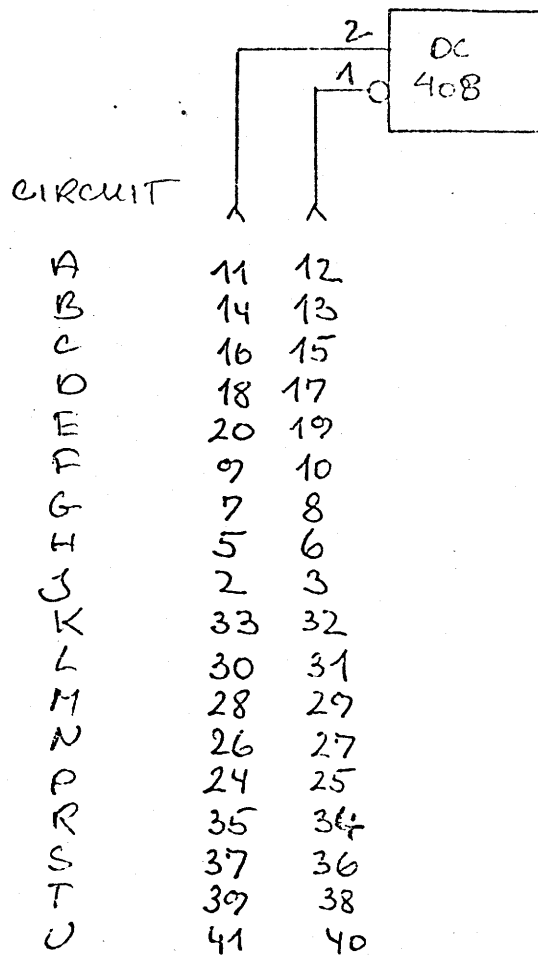 2 DC
1 408
CIRCUIT
A 11 12
B 14 13
C 16 15
D 18 17
E 20 19
F 9 10
G 7 8
H 5 6
J 2 3
K 33 32
L 30 31
M 28 29
N 26 27
P 24 25
R 35 34
S 37 36
T 39 38
U 41 40